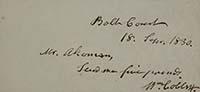 Bolt Court
18. Sepr. 1830.
Mr. Akerman,
Send me five pounds,
Wm. Cobbett